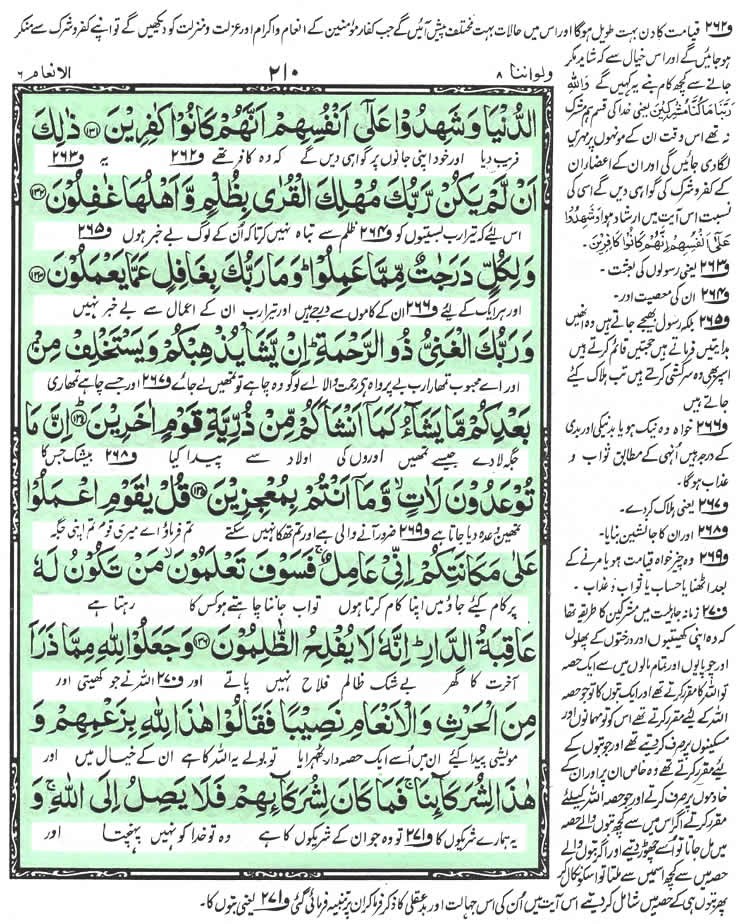 و٢٦٢ قیامت کا دن بہت طویل ہوگا اور اس میں حالات بہت مختلف پیش آئیں گے جب کفار مؤمنین کے انعام و اکرام اور عزت و منزلت کو دیکھیں گے تو اپنے کفر و شرک سے منکر
ہو جائیں گے اور اس خیال سے کہ شاید مکر
جانے سے کچھ کام بنے یہ کہیں گے وَاللّٰهِ
رَبِّنَا مَا كُنَّا مُشْرِكِيْنَ یعنی خدا کی قسم ہم مشرک
نہ تھے اس وقت ان کے مونہوں پر مہریں
لگا دی جائیں گی اور ان کے اعضا ان
کے کفر و شرک کی گواہی دیں گے اسی کی
نسبت اس آیت میں ارشاد ہوا وَشَهِدُوْا
عَلٰٓى اَنْفُسِهِمْ اَنَّهُمْ كَانُوْا كٰفِرِيْنَ۔
و٢٦٣ یعنی رسولوں کی بعثت۔
و٢٦٤ ان کی معصیت اور۔
و٢٦٥ بلکہ رسول بھیجے جاتے ہیں وہ انھیں
ہدایتیں فرماتے ہیں حجتیں قائم کرتے ہیں
اس پر بھی وہ سرکشی کرتے ہیں تب ہلاک کئے
جاتے ہیں
و٢٦٦ خواہ وہ نیک ہو یا بد نیکی اور بدی
کے درجہ ہیں انہی کے مطابق ثواب و
عذاب ہوگا۔
و٢٦٧ یعنی ہلاک کردے۔
و٢٦٨ اور ان کا جانشین بنایا۔
و٢٦٩ وہ چیز خواہ قیامت ہو یا مرنے کے
بعد اٹھنا یا حساب یا ثواب و عذاب۔
و٢٧٠ زمانہ جاہلیت میں مشرکین کا طریقہ تھا
کہ وہ اپنی کھیتیوں اور درختوں کے پھلوں
اور چوپایوں اور تمام مالوں میں سے ایک حصہ
تو اللہ کا مقرر کرتے تھے اور ایک بتوں کا تو جو حصہ
اللہ کے لئے مقرر کرتے تھے اس کو تو مہمانوں اور
مسکینوں پر صرف کردیتے تھے اور جو بتوں کے
لئے مقرر کرتے تھے وہ خاص ان پر اور ان کے
خادموں پر صرف کرتے اور جو حصہ اللہ کیلئے
مقرر کرتے اگر اس میں سے کچھ بتوں والے حصہ
میں مل جاتا تو اسے چھوڑ دیتے اور اگر بتوں والے
حصہ میں سے کچھ اسمیں سے ملتا تو اسکو نکال کر
پھر بتوں ہی کے حصہ میں شامل کردیتے اس آیت میں ان کی اس جہالت اور بد عقلی کا ذکر فرما کر ان پر تنبیہ فرمائی گئی و٢٧١ یعنی بتوں کا۔
ولواننا ٨ ٢١٠ الانعام ٦
الدُّنْيَا وَشَهِدُوْا عَلٰٓى اَنْفُسِهِمْ اَنَّهُمْ كَانُوْا كٰفِرِيْنَ ۝۱۳۰ ذٰلِكَ
فریب دیا اور خود اپنی جانوں پر گواہی دیں گے کہ وہ کافر تھے و٢٦٢ یہ و٢٦٣
اَنْ لَّمْ يَكُنْ رَّبُّكَ مُهْلِكَ الْقُرٰى بِظُلْمٍ وَّاَهْلُهَا غٰفِلُوْنَ ۝۱۳۱
اس لئے کہ تیرا رب بستیوں کو و٢٦٤ ظلم سے تباہ نہیں کرتا کہ ان کے لوگ بے خبر ہوں و٢٦٥
وَلِكُلٍّ دَرَجٰتٌ مِّمَّا عَمِلُوْا ؕ وَمَا رَبُّكَ بِغَافِلٍ عَمَّا يَعْمَلُوْنَ ۝۱۳۲
اور ہر ایک کے لئے و٢٦٦ ان کے کاموں سے درجے ہیں اور تیرا رب ان کے اعمال سے بے خبر نہیں
وَرَبُّكَ الْغَنِىُّ ذُو الرَّحْمَةِ ؕ اِنْ يَّشَاْ يُذْهِبْكُمْ وَيَسْتَخْلِفْ مِنْۢ
اور اے محبوب تمھارا رب بے پرواہ ہے رحمت والا اے لوگو وہ چاہے تو تمھیں لے جائے و٢٦٧ اور جسے چاہے تمھاری
بَعْدِكُمْ مَّا يَشَآءُ كَمَآ اَنْشَاَكُمْ مِّنْ ذُرِّيَّةِ قَوْمٍ اٰخَرِيْنَ ۝۱۳۳ اِنَّ مَا
جگہ لا دے جیسے تمھیں اوروں کی اولاد سے پیدا کیا و٢٦٨ بیشک جس کا
تُوْعَدُوْنَ لَاٰتٍ ۙ وَّمَآ اَنْتُمْ بِمُعْجِزِيْنَ ۝۱۳۴ قُلْ يٰقَوْمِ اعْمَلُوْا
تمھیں وعدہ دیا جاتا ہے و٢٦٩ ضرور آنے والی ہے اور تم تھکا نہیں سکتے تم فرماؤ اے میری قوم تم اپنی جگہ
عَلٰى مَكَانَتِكُمْ اِنِّىْ عَامِلٌ ۚ فَسَوْفَ تَعْلَمُوْنَ ۙ مَنْ تَكُوْنُ لَهٗ
پر کام کئے جاؤ میں اپنا کام کرتا ہوں تو اب جاننا چاہتے ہو کس کا رہتا ہے
عَاقِبَةُ الدَّارِ ؕ اِنَّهٗ لَا يُفْلِحُ الظّٰلِمُوْنَ ۝۱۳۵ وَجَعَلُوْا لِلّٰهِ مِمَّا ذَرَاَ
آخرت کا گھر بے شک ظالم فلاح نہیں پاتے اور و٢٧٠ اللہ نے جو کھیتی اور
مِنَ الْحَرْثِ وَالْاَنْعَامِ نَصِيْبًا فَقَالُوْا هٰذَا لِلّٰهِ بِزَعْمِهِمْ وَ
مویشی پیدا کئے ان میں اسے ایک حصہ دار ٹھہرایا تو بولے یہ اللہ کا ہے ان کے خیال میں اور
هٰذَا لِشُرَكَآئِنَا ۚ فَمَا كَانَ لِشُرَكَآئِهِمْ فَلَا يَصِلُ اِلَى اللّٰهِ ۚ وَ
یہ ہمارے شریکوں کا و٢٧١ تو وہ جو ان کے شریکوں کا ہے وہ تو خدا کو نہیں پہنچتا اور